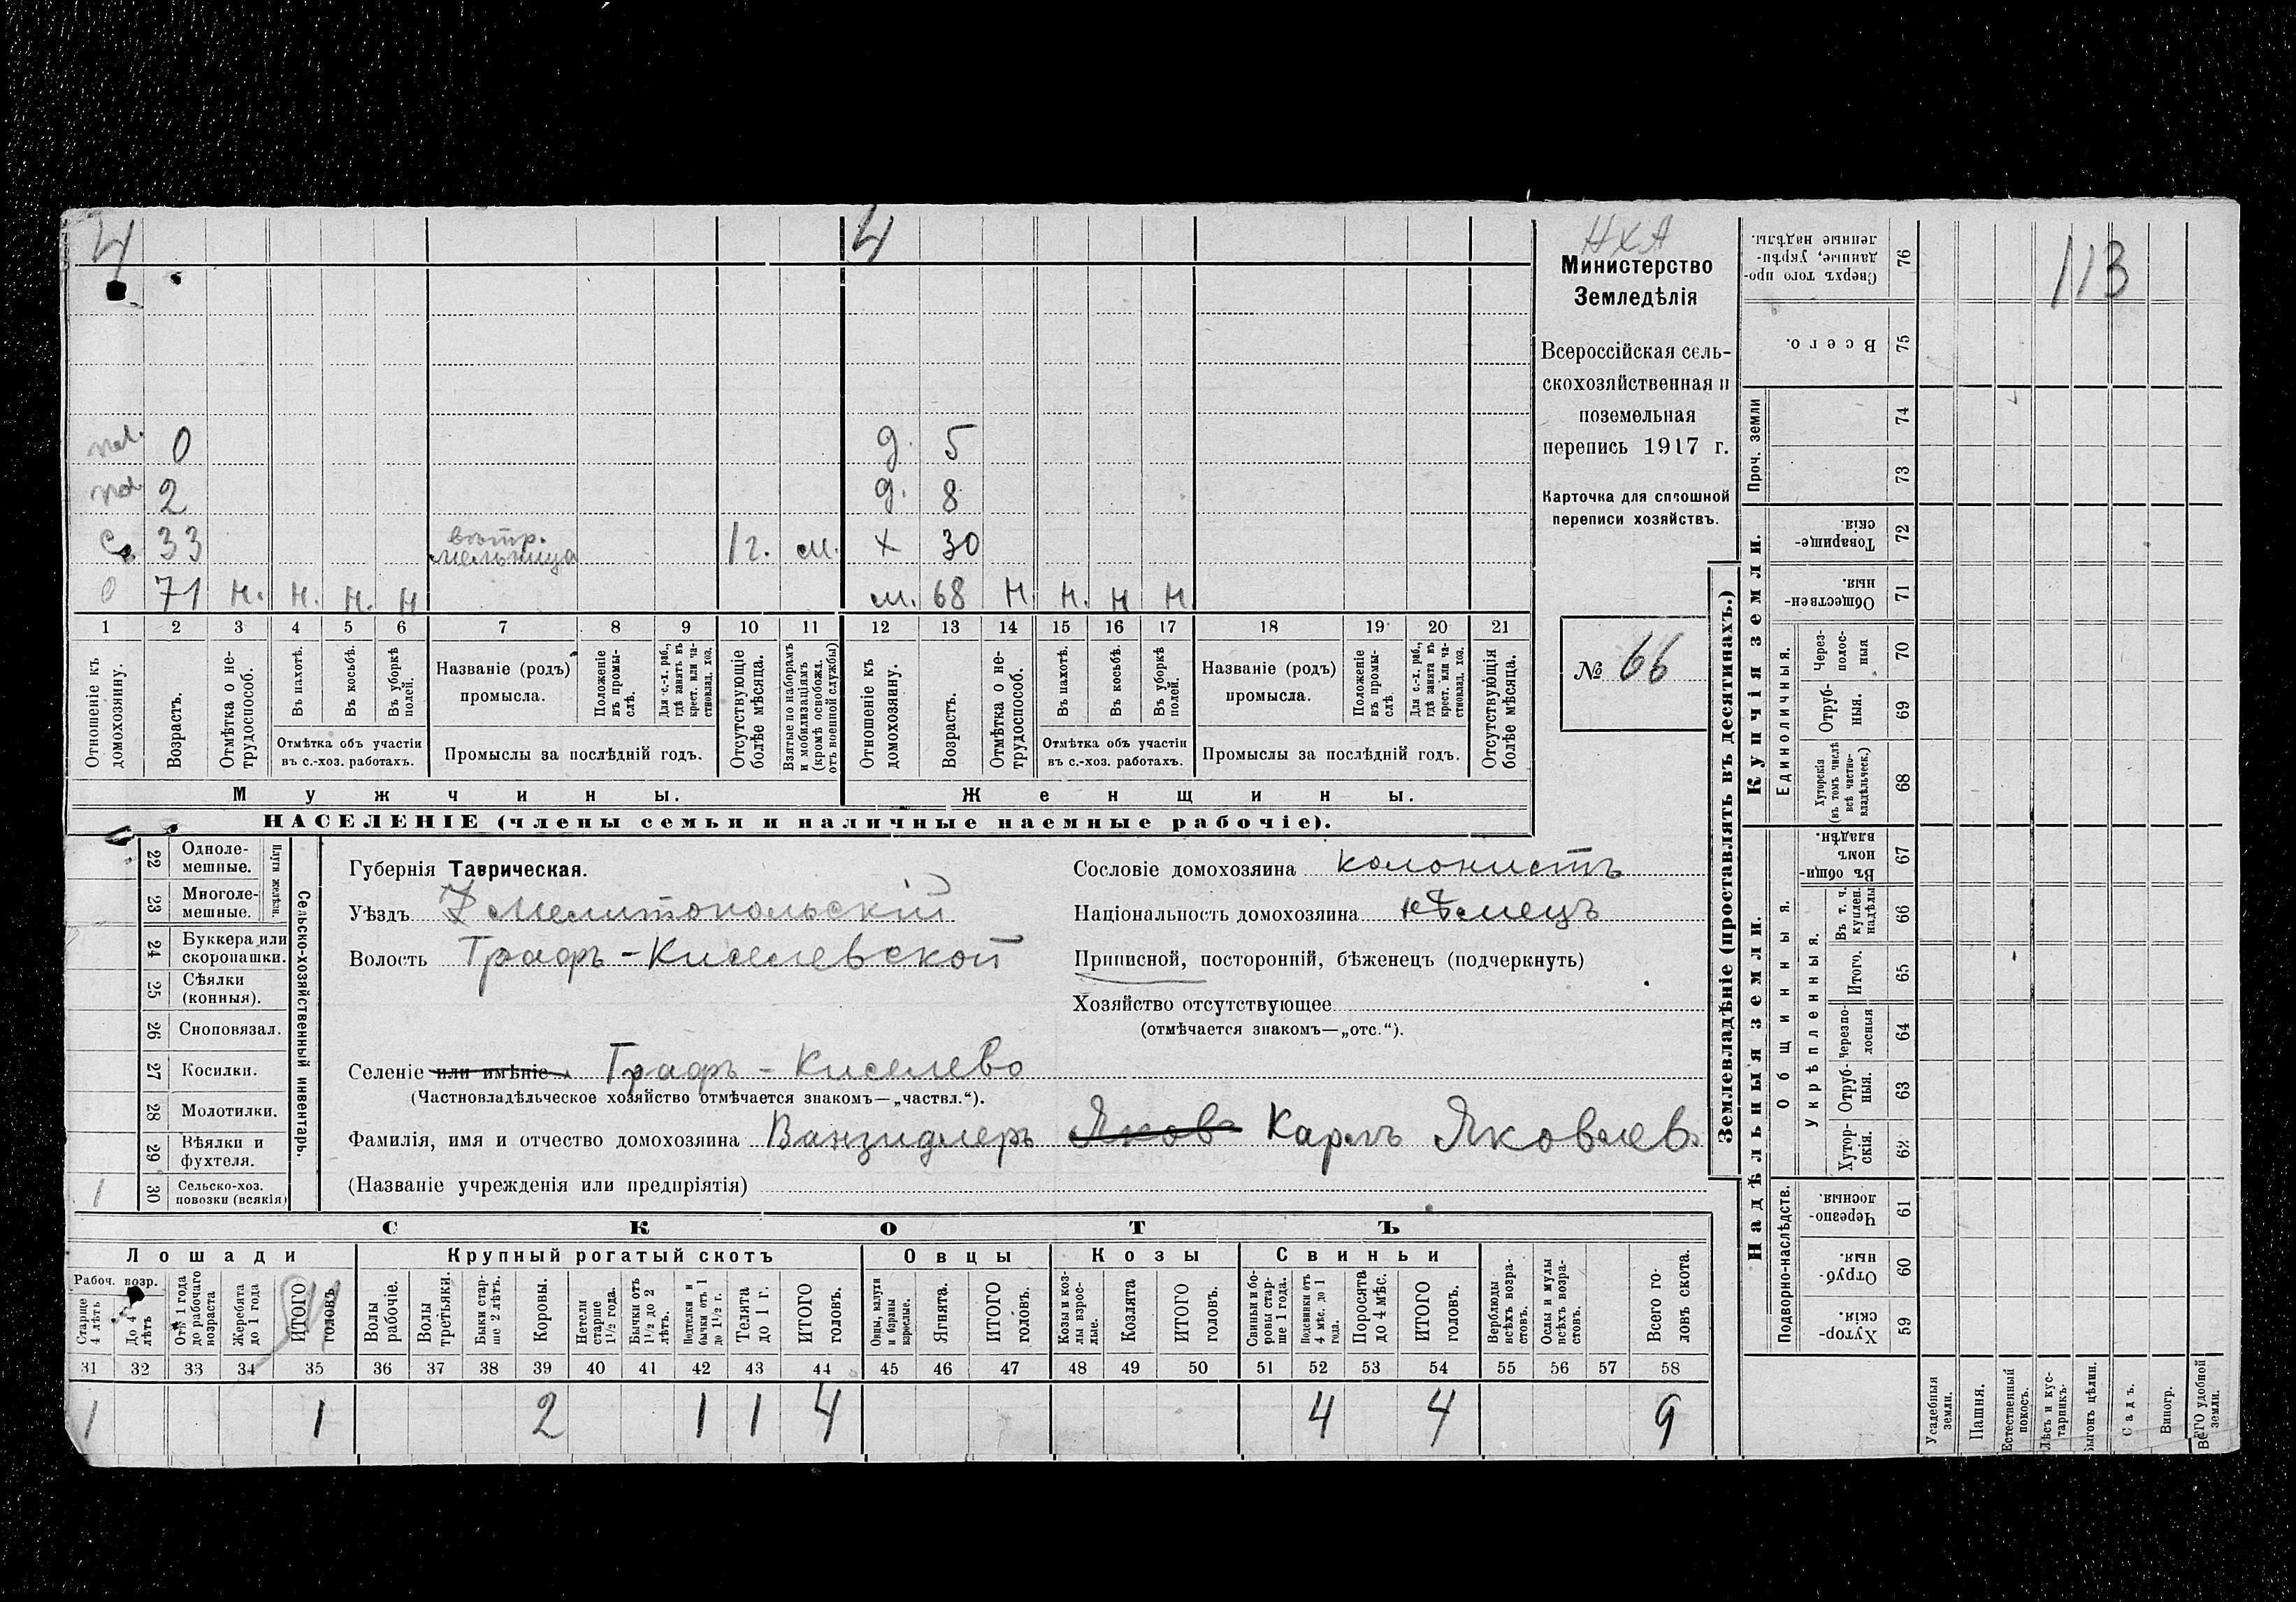 4
4
О 5
2 д. 8
д.
вѣтр.
С 33 мельница 1 г. м. х 30
О 71 н. н. н. н м. 68 н. н. н н
1 2 3 4 5 6 7 8 9 10 11 12 13 14 15 16 17 18 19 20 21
Отношеніе къ домохозяину.
Возрастъ.
Отмѣтка о не-трудоспособ.
Въ пахотѣ.
Въ косьбѣ.
Въ уборкѣ полей.
Отмѣтка объ участіи
въ с.-хоз. работахъ.
Названіе (родъ)
промысла.
Положеніе въ промы-слѣ.
Для с.-х. раб., гдѣ занятъ въ крест. или ча-стновлад. хоз.
Промыслы за послѣдній годъ.
Отсутствующіе болѣе мѣсяца.
Взятые по наборамъ и мобилизаціямъ (кромѣ освобожд. отъ военной службы)
Отношеніе къ домохозяину.
Возрастъ.
Отмѣтка о не-трудоспособ.
Въ пахотѣ.
Въ косьбѣ.
Въ уборкѣ полей.
Отмѣтка объ участіи
въ с.-хоз. работахъ.
Названіе (родъ)
промысла.
Положеніе въ промы-слѣ
Для с.-х. раб., гдѣ занята въ крест. или ча-стновлад. хоз.
Промыслы за послѣдній годъ.
Отсутствующія болѣе мѣсяца.
Мужчины.
Женщины.
НАСЕЛЕНІЕ (члены семьи и наличные наемные рабочіе).
НХА
Министерство
Земледѣлія
Всероссійская сель-
скохозяйственная и
поземельная
перепись 1917 г.
Карточка для сплошной
переписи хозяйствъ.
№ 66
22 Одноле-мешные.
23 Многоле-мешные.
Плуги желѣзн.
24 Буккера или скоропашки.
25 Сѣялки (конныя).
26 Сноповязал.
27 Косилки.
28 Молотилки.
29 Вѣялки и фухтеля.
1 30 Сельско-хоз. повозки (всякія)
Сельско-хозяйственный инвентарь.
Губернія Таврическая.
Уѣздъ Мелитопольскій
Волость Графъ-Киселевской
Селеніе или имѣніе Графъ-Киселево
(Частновладѣльческое хозяйство отмѣчается знакомъ—„частвл.“).
Фамилія, имя и отчество домохозяина Ванзидлеръ Яковъ Карлъ Яковлев
(Названіе учрежденія или предпріятія)
Сословіе домохозяина колонистъ
Національность домохозяина нѣмецъ
Приписной, посторонній, бѣженецъ (подчеркнуть)
Хозяйство отсутствующее
(отмѣчается знакомъ—„отс.“).
СКОТЪ
Лошади
Крупный рогатый скотъ
Овцы
Козы
Свиньи
Рабоч. возр.
Старше 4 лѣтъ
До 4 лѣтъ
Отъ 1 года до рабочаго возраста
Жеребята до 1 года
ИТОГО головъ.
Волы рабочіе.
Волы третьяки.
Быки стар-ше 2 лѣтъ.
Коровы.
Нетели старше 1½ года.
Бычки отъ 1½ до 2 лѣтъ.
Подтелки и бычки отъ 1 до 1½ г.
Телята до 1 г.
ИТОГО головъ.
Овцы, валухи и бараны взрослые.
Ягнята.
ИТОГО головъ.
Козы и коз-лы взрос-лые.
Козлята
ИТОГО головъ.
Свиньи и бо-ровы стар-ше 1 года.
Подсвинки отъ 4 мѣс. до 1 года.
Поросята до 4 мѣс.
ИТОГО головъ.
Верблюды всѣхъ возра-стовъ.
Ослы и мулы всѣхъ возра-стовъ.
Всего го-ловъ скота.
31 32 33 34 35 36 37 38 39 40 41 42 43 44 45 46 47 48 49 50 51 52 53 54 55 56 57 58
1 1 2 1 1 4 4 4 9
Землевладѣніе (проставлять въ десятинахъ.)
Купчія земли.
Надѣльныя земли.
Сверхъ того про-данные, укрѣп-ленные надѣлы. 76
113
Всего. 75
Проч. земли
74
73
Товарище-скія. 72
Обществен-ныя. 71
Единоличныя.
Через-полос-ныя 70
Отруб-ныя. 69
Хуторскія (въ томъ числѣ всѣ частно-владѣльческ.) 68
Общинныя.
Въ общи-номъ владѣн. 67
Укрѣпленныя.
Въ т. ч. куплен. надѣлы 66
Итого. 65
Черезпо-лосныя 64
Отруб-ныя. 63
Хутор-скія. 62
Подворно-наслѣдств.
Черезпо-лосныя. 61
Отруб-ныя. 60
Хутор-скія. 59
Усадебныя земли.
Пашня.
Естественный покосъ.
Лѣсъ и кус-тарникъ.
Выгонъ цѣлин.
Садъ.
Виногр.
ВСЕГО удобной земли.